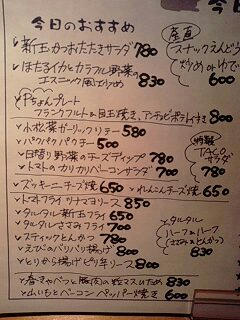 今日のおすすめ
新玉かつおたたきサラダ 780
ほたるイカとカラフル野菜の
エスニック風炒め 830
Pちょんプレート
フランクフルト&目玉焼き、アンチョビポテト付き 800
小松菜ガーリックソテー 580
パクパクパクチー 500
日替り野菜のチーズディップ 780
トマトのカリカリベーコンサラダ 700
ズッキーニチーズ焼 650
れんこんチーズ焼 650
トマトフライ ツナマヨソース 850
タルタル新玉フライ 650
タルタルささみフライ 700
スティックとんかつ 780
えびのパリパリ揚げ 800
とりから揚げピリ辛ソース 800
春キャベツと豚肉の粒マスタード炒め 830
ふいもとベーコンペッパー焼き 600
産直
スナックえんどう
炒めorゆで
600
特製
TACO
サラダ
780
タルタル
ハーフ&ハーフ
(ささみ&とんかつ)
830
今日